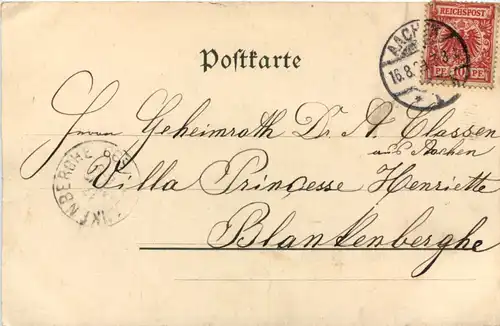 REICHSPOST
PF PF
AACHEN
16.8.
Postkarte
Herrn Geheimrath Dr. A. Classen
aus Aachen
Villa Princesse Henriette
Blankenberghe